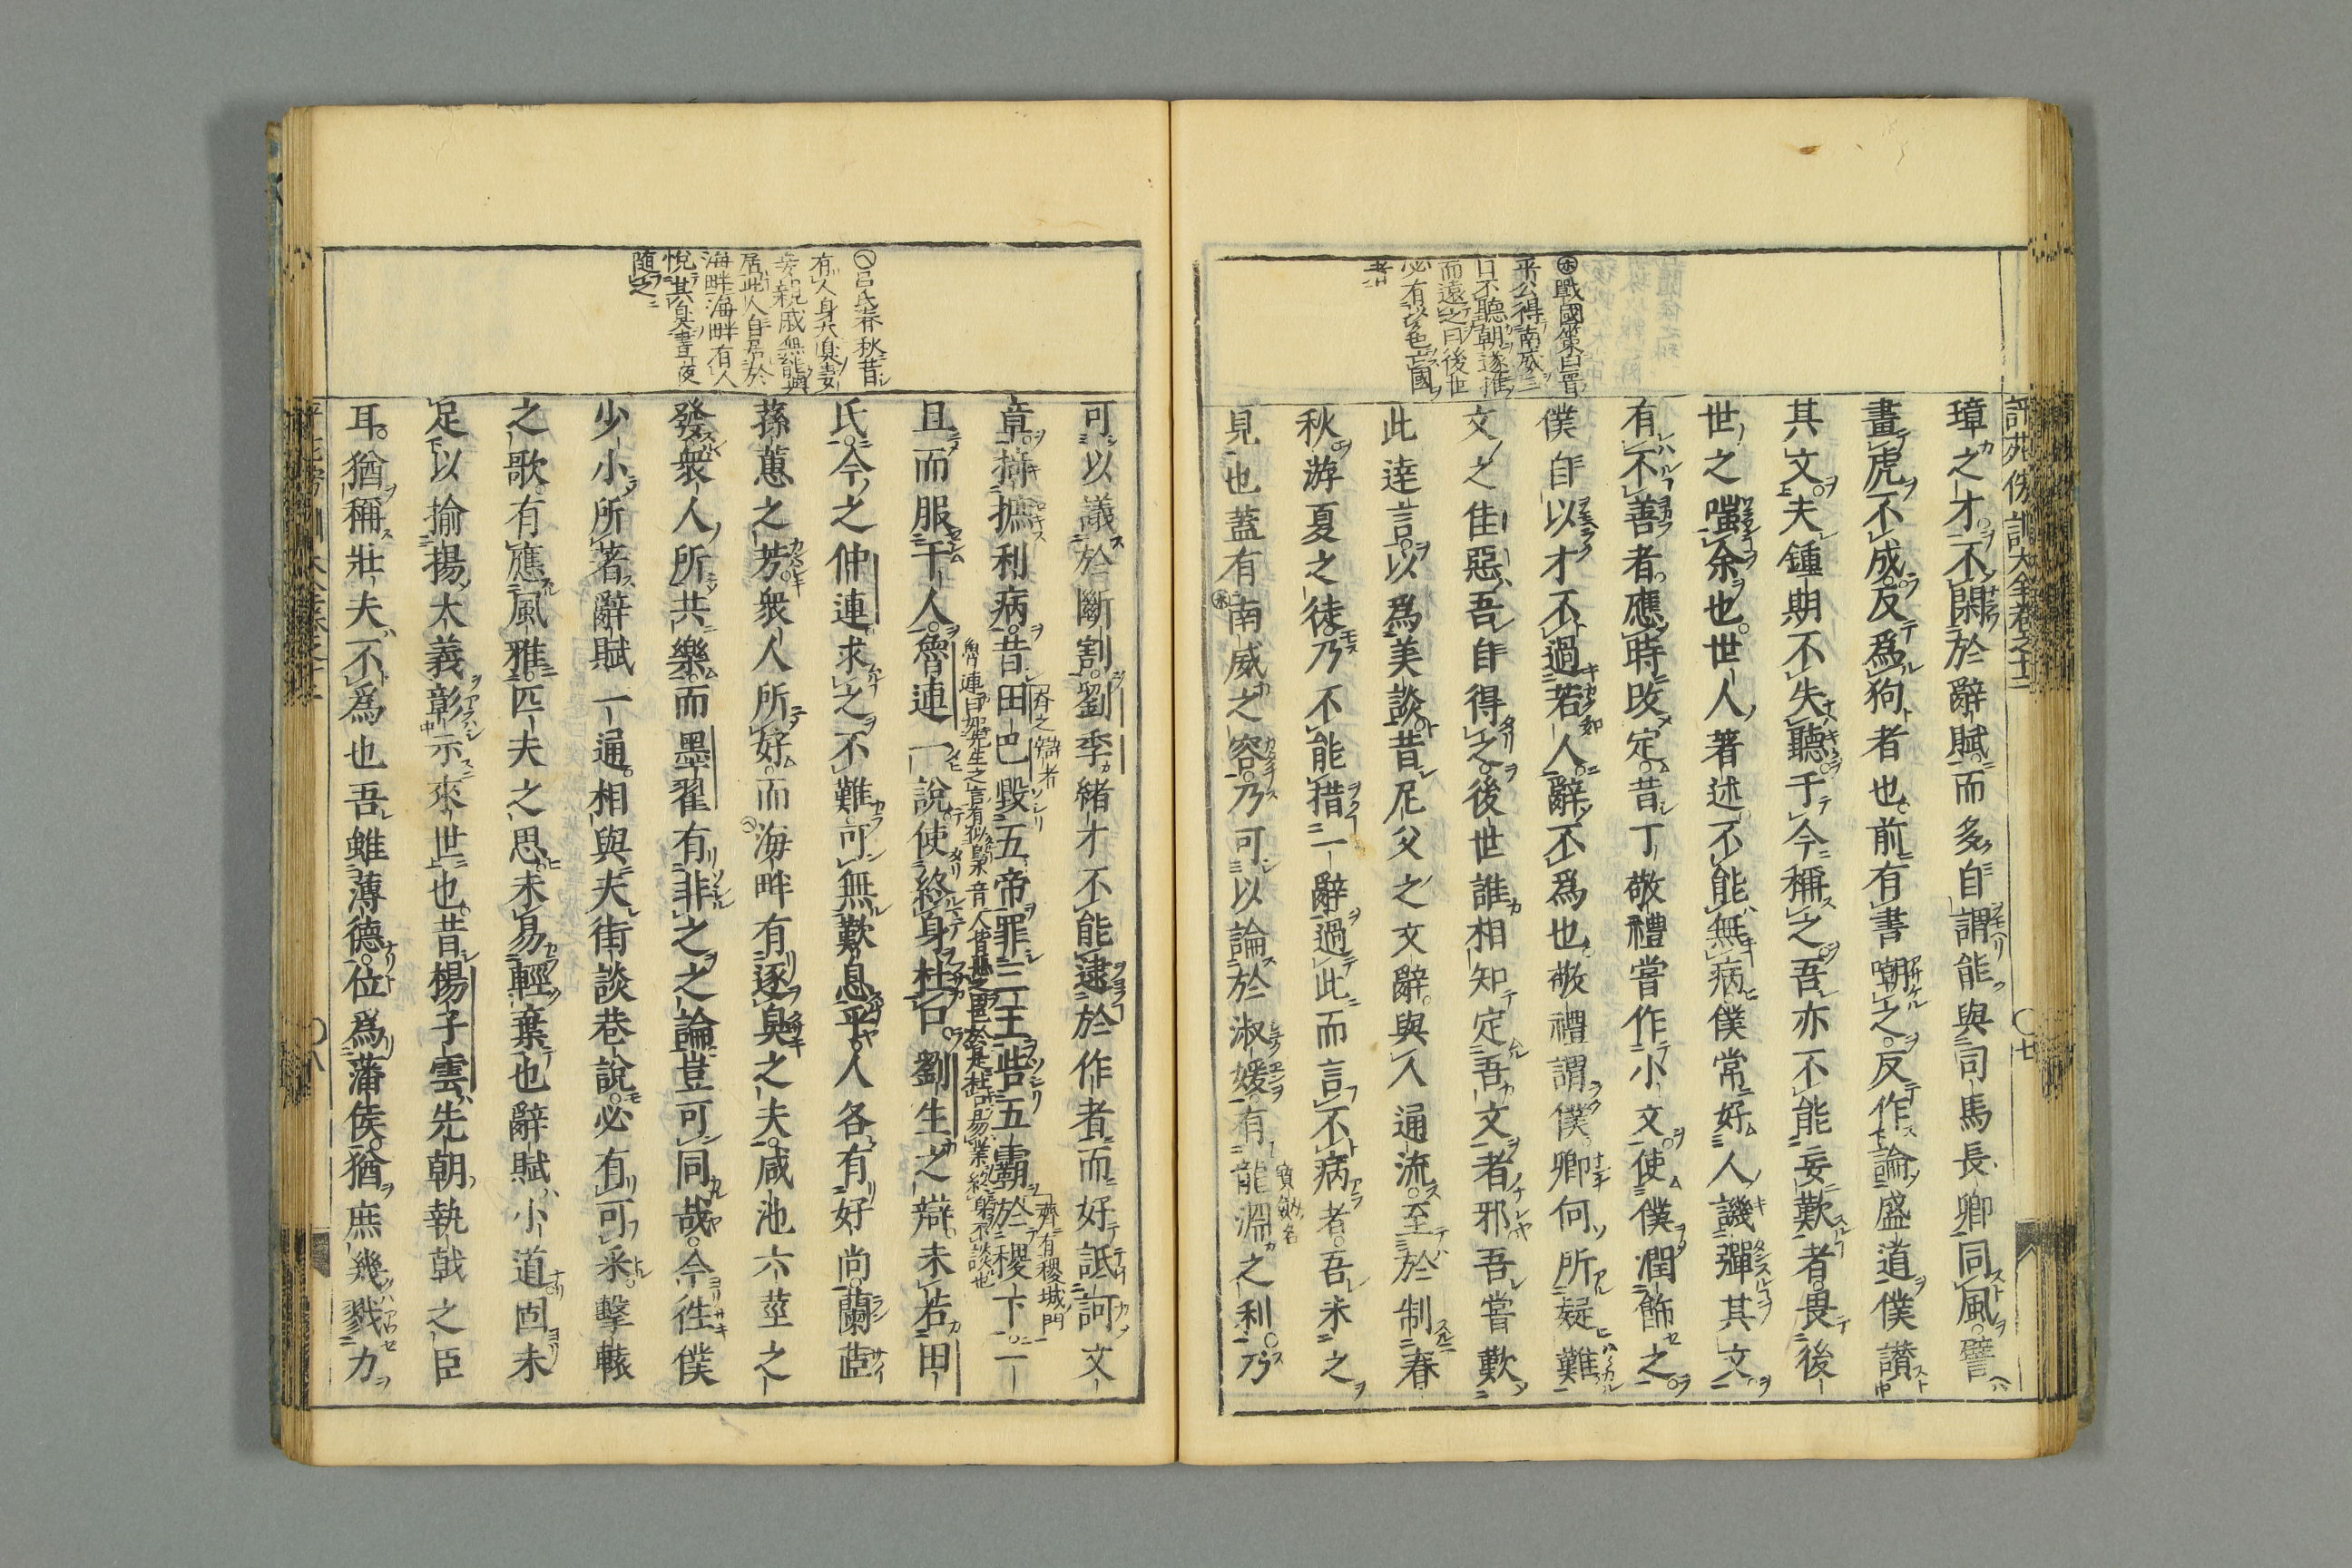 璋之才不閑於辭賦而多自謂能與司馬長卿同風譬
畫虎不成反爲狗者也前有書嘲之反作論盛道僕讃
其文夫鍾期不失聽于今稱之吾亦不能妄歎者畏後
世之嗤余也世人著述不能無病僕常好人譏彈其文
有不善者應時改定昔丁敬禮嘗作小文使僕潤飾之
僕自以才不過若人辭不爲也敬禮謂僕卿何所疑難
文之佳惡吾自得之後世誰相知定吾文者邪吾嘗歎
此達言以爲美談昔尼父之文辭與人通流至於制春
秋游夏之徒乃不能措一辭過此而言不病者吾未之
見也蓋有南威之容乃可以論於淑媛有龍淵之利乃
寶劔名
㊍戰國策曰晉
平公得南威三
日不聽朝遂推
而遠之曰後世
必有以色亡國
者
可以議於斷割劉季緒才不能逮於作者而好詆訶文
章掎摭利病昔田巴毀五帝罪三王呰五霸於稷下一
齊之辯者
齊有稷城門
且而服千人魯連一說使終身杜口劉生之辯未若田
氏今之仲連求之不難可無歎息乎人各有好尚蘭茝
蓀蕙之芳衆人所好而海畔有逐臭之夫咸池六莖之
發衆人所共樂而墨翟有非之之論豈可同哉今往僕
少小所著辭賦一通相與夫街談巷說必有可采擊轅
之歌有應風雅匹夫之思未易輕棄也辭賦小道固未
足以揄揚大義彰示來世也昔楊子雲先朝執戟之臣
耳猶稱壯夫不爲也吾雖薄德位爲蕃侯猶庶幾戮力
呂氏春秋昔
有人身大臭妻
妾親戚無能與
居此人自居於
海畔海畔有人
悅其臭晝夜
随之